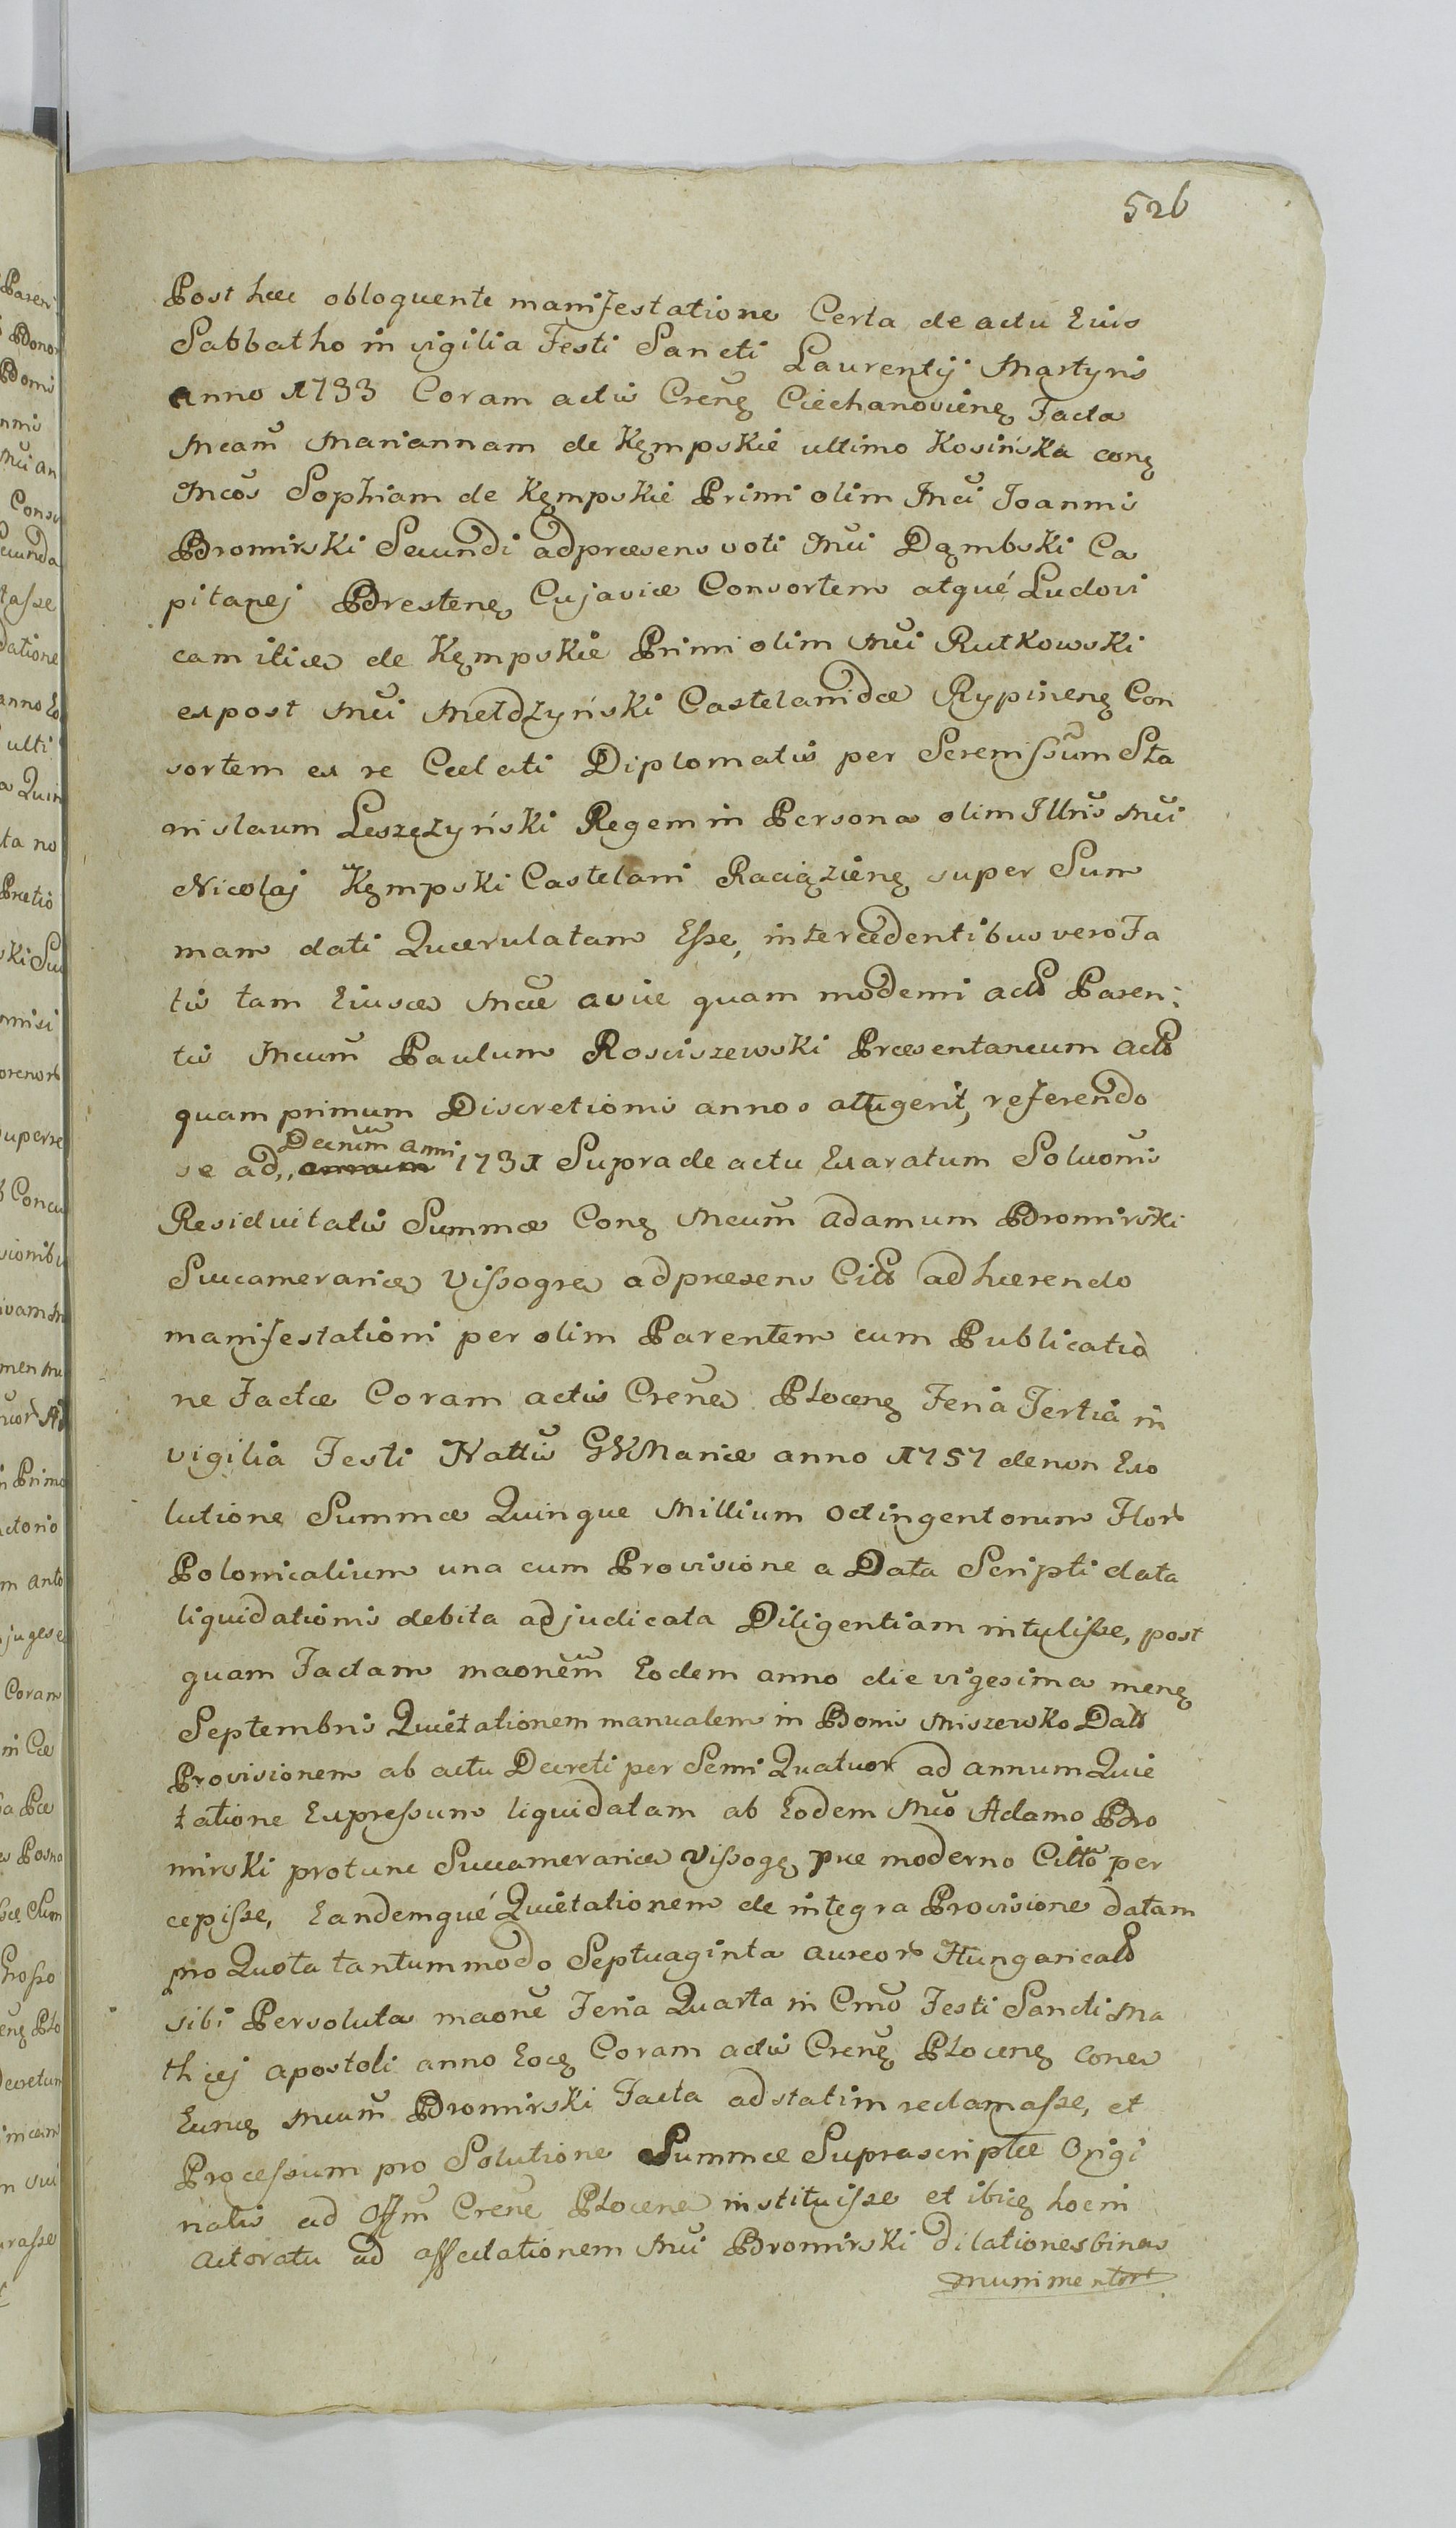 526
Post hæc obloquente manifestatione Certa de actu Eius
Sabbatho in vigilia Festi Sancti Laurentij Martyris
anno 1733 Coram actis Crenę Ciechanovienę Facta
Mcam Mariannam de Kempskie ultimo Kosińska conę
Mcos Sophiam de Kempskie Primi olim Mci Joannis
Bromirski Secundi adpræsens voti Mci Dąmbski Ca
pitanej Brestenę Cujaviæ Consortem atqué Ludovi
cam itiæ de Kempskie Primi olim Mci Rutkowski
expost Mci Mełdzyński Castelanidæ Rypinenę Con
sortem ex re Cælati Diplomatis per Serenissum Sta
nislaum Leszczyński Regem in Persona olim Illris Mci
Nicolaj Kempski Castelani Raciązienę super Sum
mam dati Quærulatam Esse, intercedentibus vero Fa
tis tam Eiusce Mcæ aviæ quam moderni actō Paren:
tis Mcum Paulum Rosciszewski Præsentaneum actō
quam primum Discretionis annos attigerit, referendo
se ad Decrum anni 1731 Supra de actu Exaratum Soluonis
Residuitatis Summæ Conę Mcum Adamum Bromirski
Succameraricæ Vissogræ adpræsens Citō adhærendo
manifestationi per olim Parentem cum Publicatio
ne Factæ Coram actis Crene Plocenę Feria Tertia in
vigilia Festi Nattis GVMariæ anno 1757 de non Exo
lutione Summæ Quinque Millium octingentorum Flor
Polonicalium una cum Provisione a Data Scripti data
liquidationis debita adjudicata Diligentiam intulisse, post
quam Factam maonem Eodem anno die vigesima menę
Septembris Quietationem manualem in Bonis Miszewko Datō
Provisionem ab actu Decreti per Semi Quatuor ad annum Quie
tatione Expressum liquidatam ab Eodem Mco Adamo Bro
mirski protunc Succameraricæ Vissogę præ moderno Citto per
cepisse, Eandemqué Quietationem de integra Provisione datam
pro Quota tantummodo Septuaginta aureor Hungaricalō
sibi Persoluta maone Feria Quarta in Cmo Festi Sancti Ma
thæj apostoli anno Eoę Coram actis Crenę Plocenę cone
Eunę Mcum Bromirski Facta adstatim reclamasse, et
Processum pro Solutione Summæ Suprascriptæ Origi
nalis ad Offm Crene Plocene instituisse et ibię hoc in
actoratu ad affectationem Mci Bromirski dilationes binas
munimentor